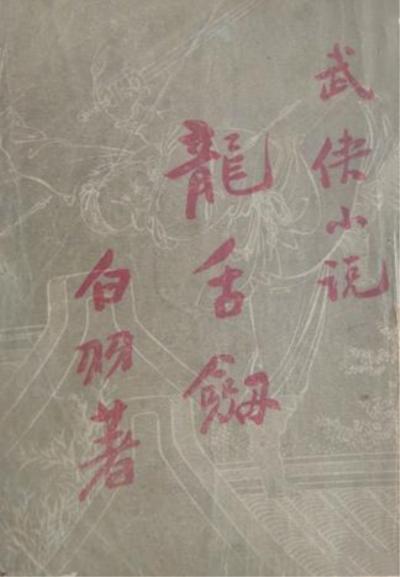 武侠小说
龍舌劔
白羽著